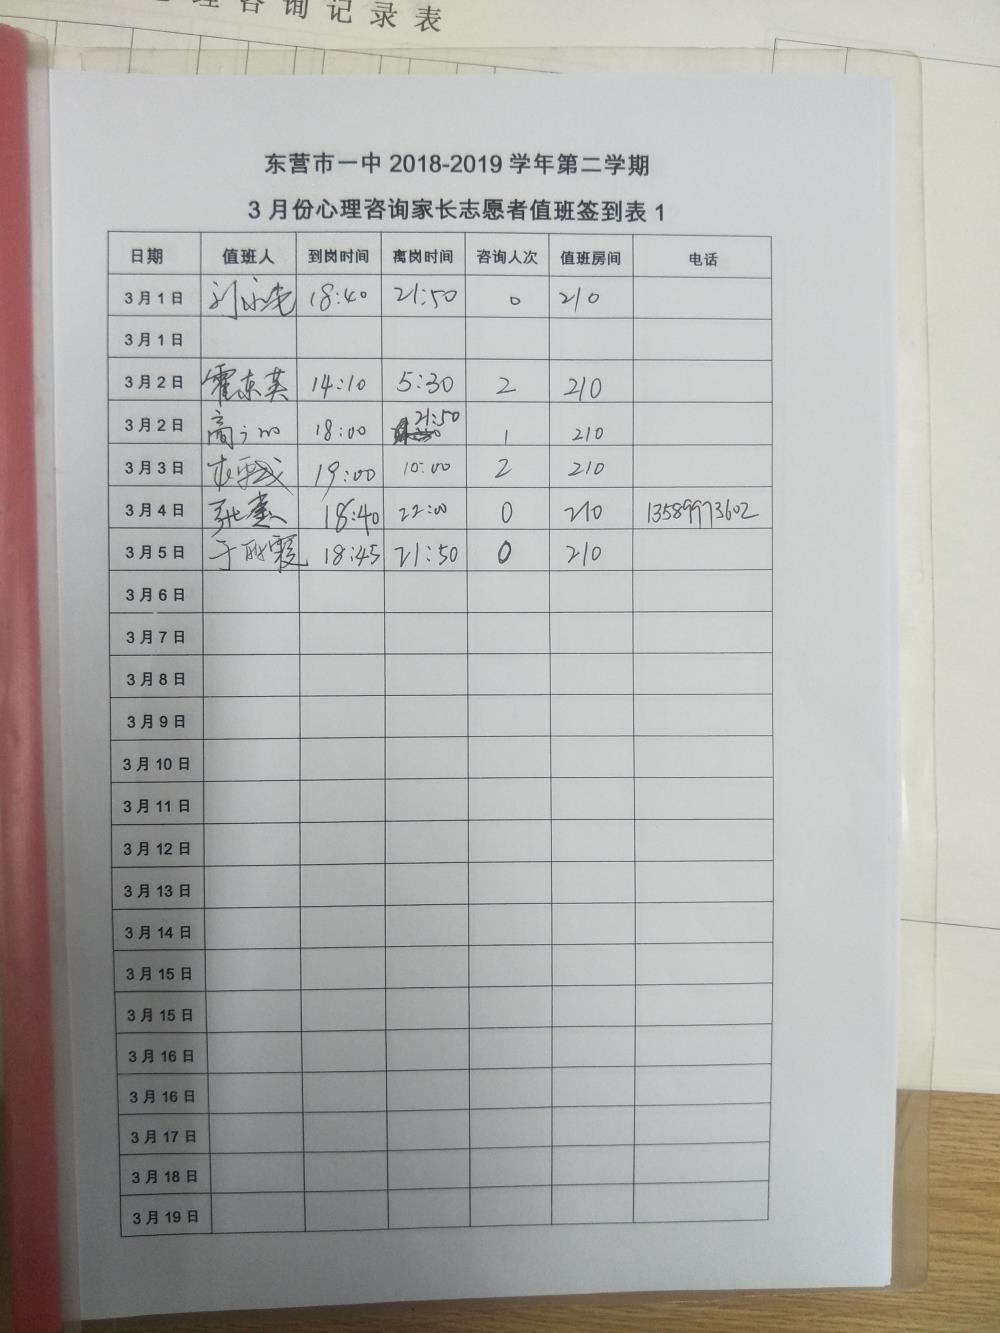 理咨询记录表
东营市一中 2018-2019 学年第二学期
3 月份心理咨询家长志愿者值班签到表 1
日期 值班人 到岗时间 离岗时间 咨询人次 值班房间 电话
3 月 1 日 18:40 21:50 0 210
3 月 1 日
3 月 2 日 霍东英 14:10 5:30 2 210
3 月 2 日 18:00 21:50 1 210
3 月 3 日 19:00 10:00 2 210
3 月 4 日 18:40 22:00 0 210 13589973602
3 月 5 日 18:45 21:50 0 210
3 月 6 日
3 月 7 日
3 月 8 日
3 月 9 日
3 月 10 日
3 月 11 日
3 月 12 日
3 月 13 日
3 月 14 日
3 月 15 日
3 月 15 日
3 月 16 日
3 月 16 日
3 月 17 日
3 月 18 日
3 月 19 日